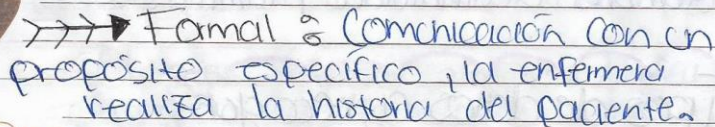 Formal: Comunicación con un
propósito específico, la enfermera
realiza la historia del paciente.